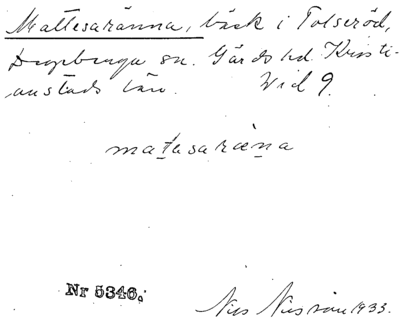 Mattesaränna, bäck i Tolseröd,
Degeberga sn. Gärds hd. Kristi-
anstads län. Vid 9.
matesaræna
Nr 5346.
Nils Nilsson 1933.